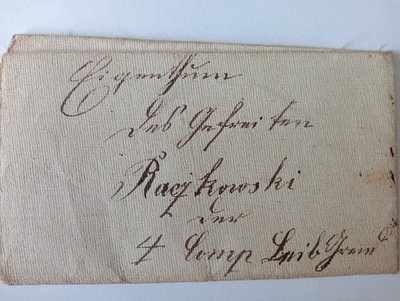 Eigenthum
des Gefreiten
Raczkowski
der
4 Comp Leib Gren